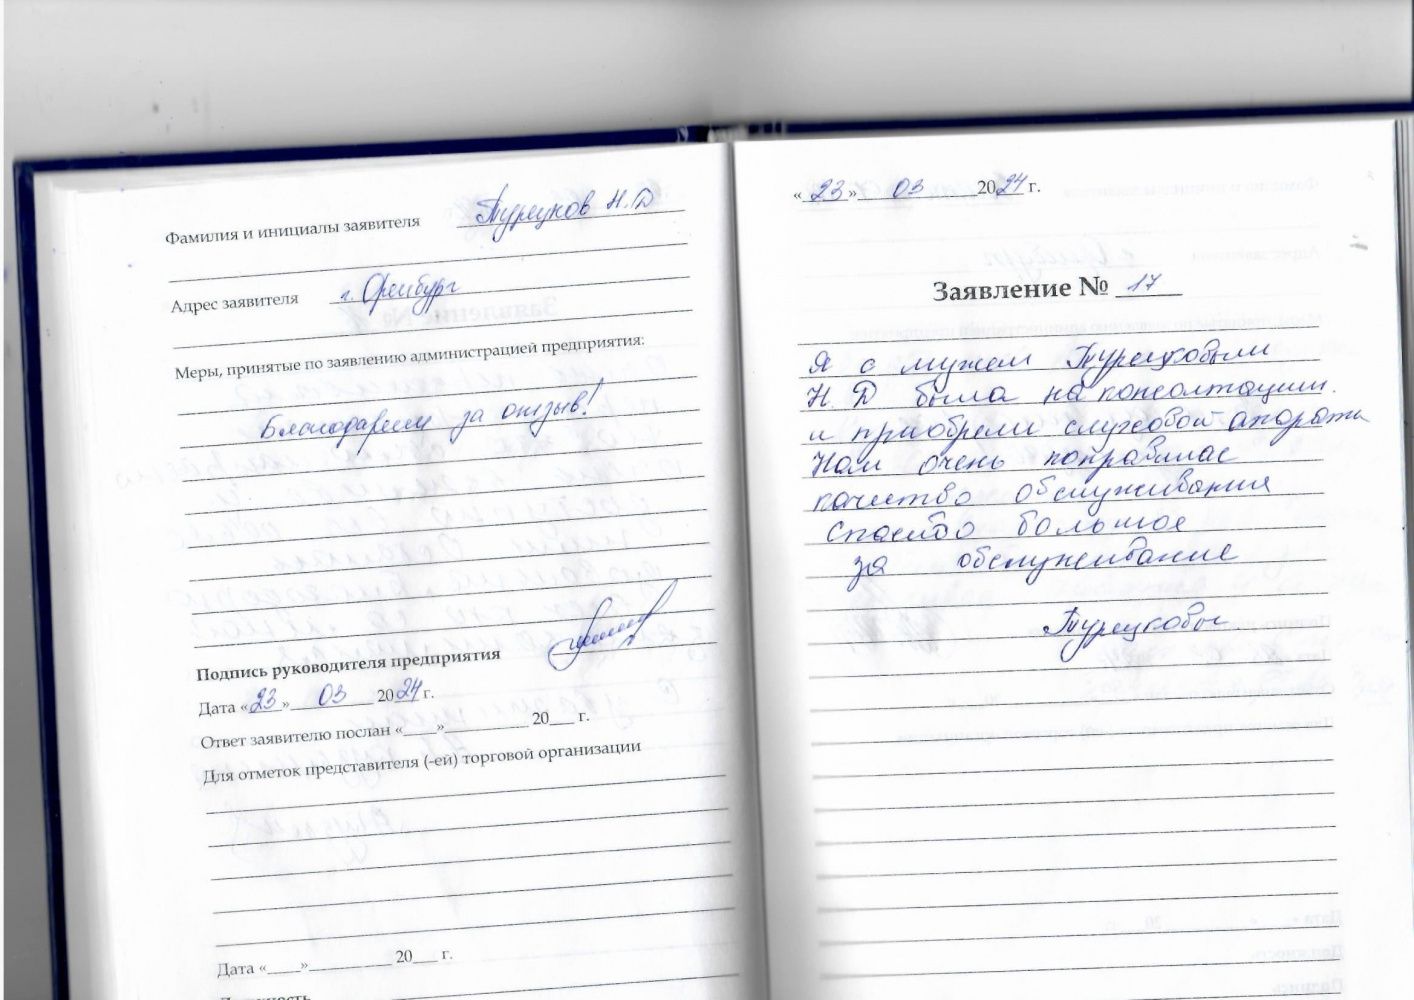 Фамилия и инициалы заявителя Турецков Н.Д
Адрес заявителя г. Оренбург
Меры, принятые по заявлению администрацией предприятия:
Благодарим за отзыв!
Подпись руководителя предприятия
Дата «23» 03 2024 г.
Ответ заявителю послан «____»__________ 20___ г.
Для отметок представителя (-ей) торговой организации
Дата «____»__________ 20___ г.
Должность
«23» 03 2024 г.
Заявление № 17
Я с мужем Турецковыми
Н. Д была на консолтации.
и приобрели слуховой апораты
Нам очень понравилас
качество обслуживания
Спасибо большое
за обслуживание
Турецковы